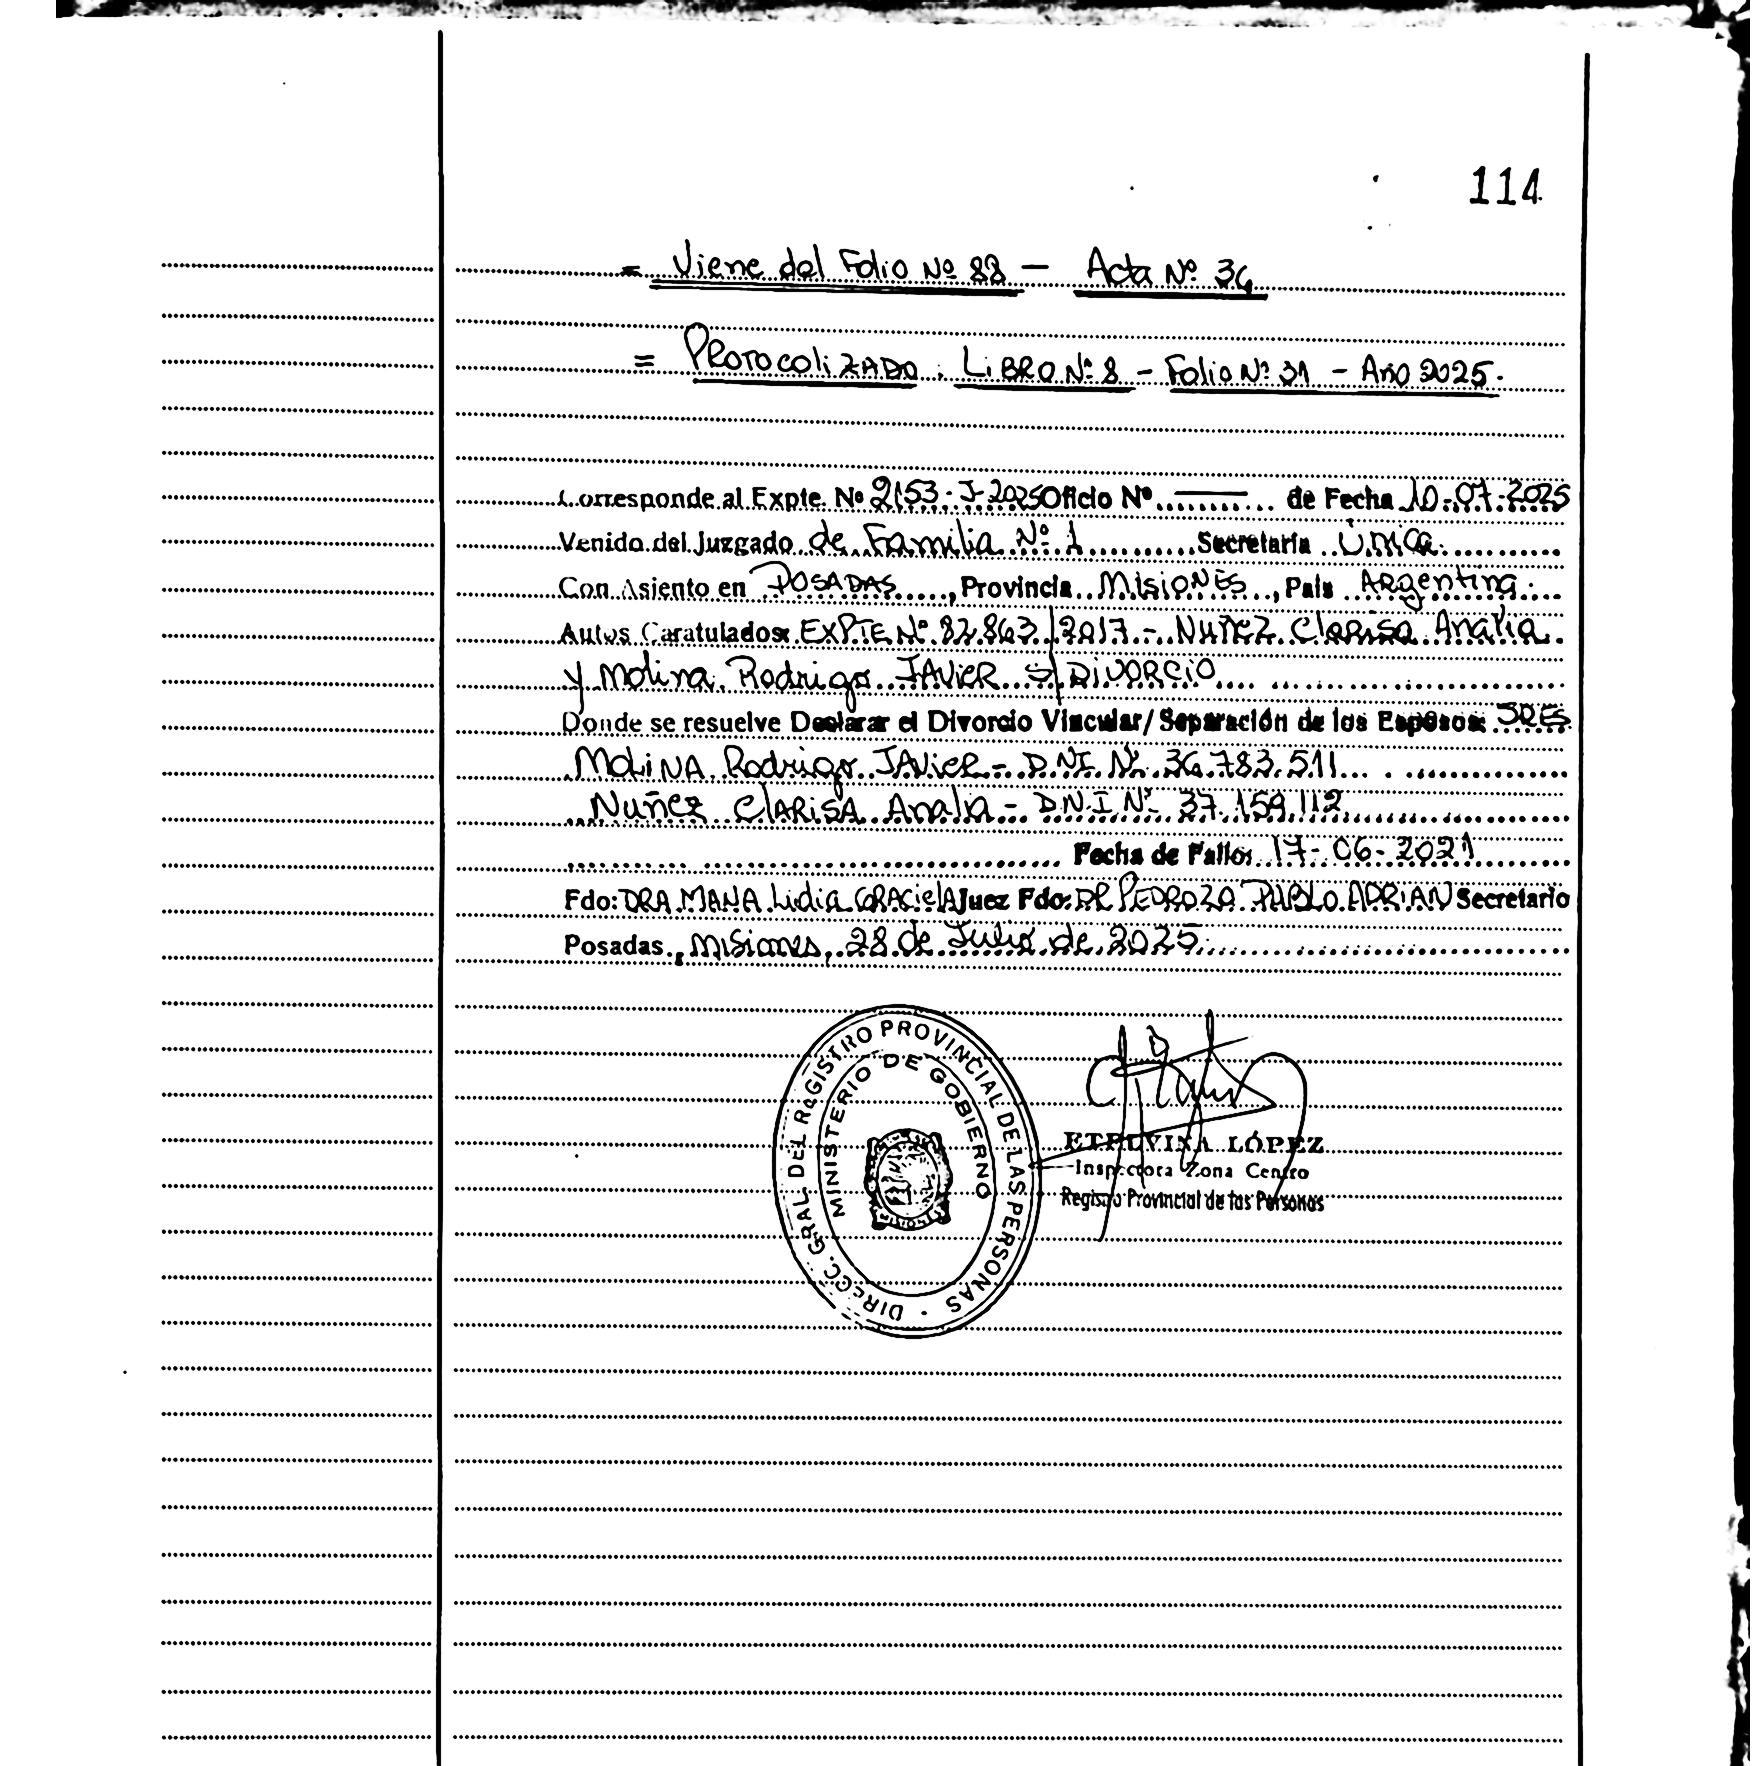 114
= Viene del Folio Nº 88 — Acta Nº 34
= PROTOCOLIZADO. LIBRO Nº 8 - Folio Nº 31 - Año 2025.
Corresponde al Expte. Nº 2153-J-2025 Oficio Nº ——— de Fecha 10-07-2025
Venido del Juzgado de Familia Nº 1 Secretaria Única
Con Asiento en POSADAS, Provincia MISIONES, País ARgentina.
Autos Caratulados: EXPTE Nº 82.863/2017 - NUÑEZ Clarisa Analia
y Molina Rodrigo JAVIER S/ DIVORCIO
Donde se resuelve Declarar el Divorcio Vincular/Separación de los Esposos: SRES
MOLINA Rodrigo JAVIER - D.N.I. Nº 36.783.511
Nuñez ClARISA Analia - D.N.I Nº 37.159.112
Fecha de Fallo: 17-06-2021
Fdo: DRA Lidia GRACIELA Juez Fdo: DR PEDROZA PABLO ADRIAN Secretario
Posadas, Misiones, 28 de Julio de 2025
DIRECC. GRAL. DEL REGISTRO PROVINCIAL DE LAS PERSONAS
MINISTERIO DE GOBIERNO
ETELVINA LÓPEZ
Inspectora Zona Centro
Registro Provincial de las Personas